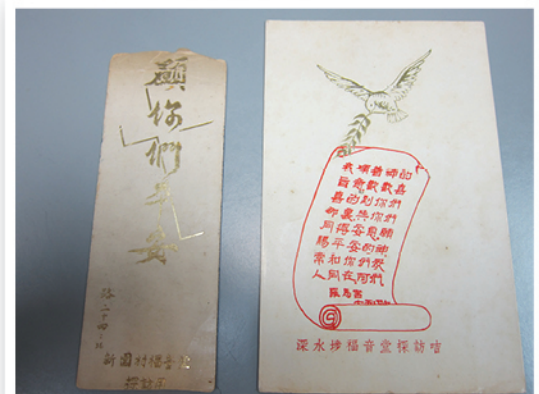 願你們平安
路二十四
福音堂
我順着神的
旨意歡歡喜
喜的到你們
那裏與你們
同得安息願
賜平安的神
常和你們眾
人同在阿們
羅馬書
深水埗福音堂探訪咭